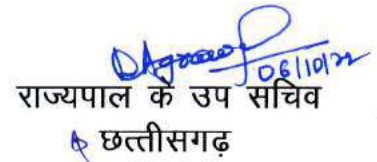 DAgrawal
06/10/22
राज्यपाल के उप सचिव
छत्तीसगढ़